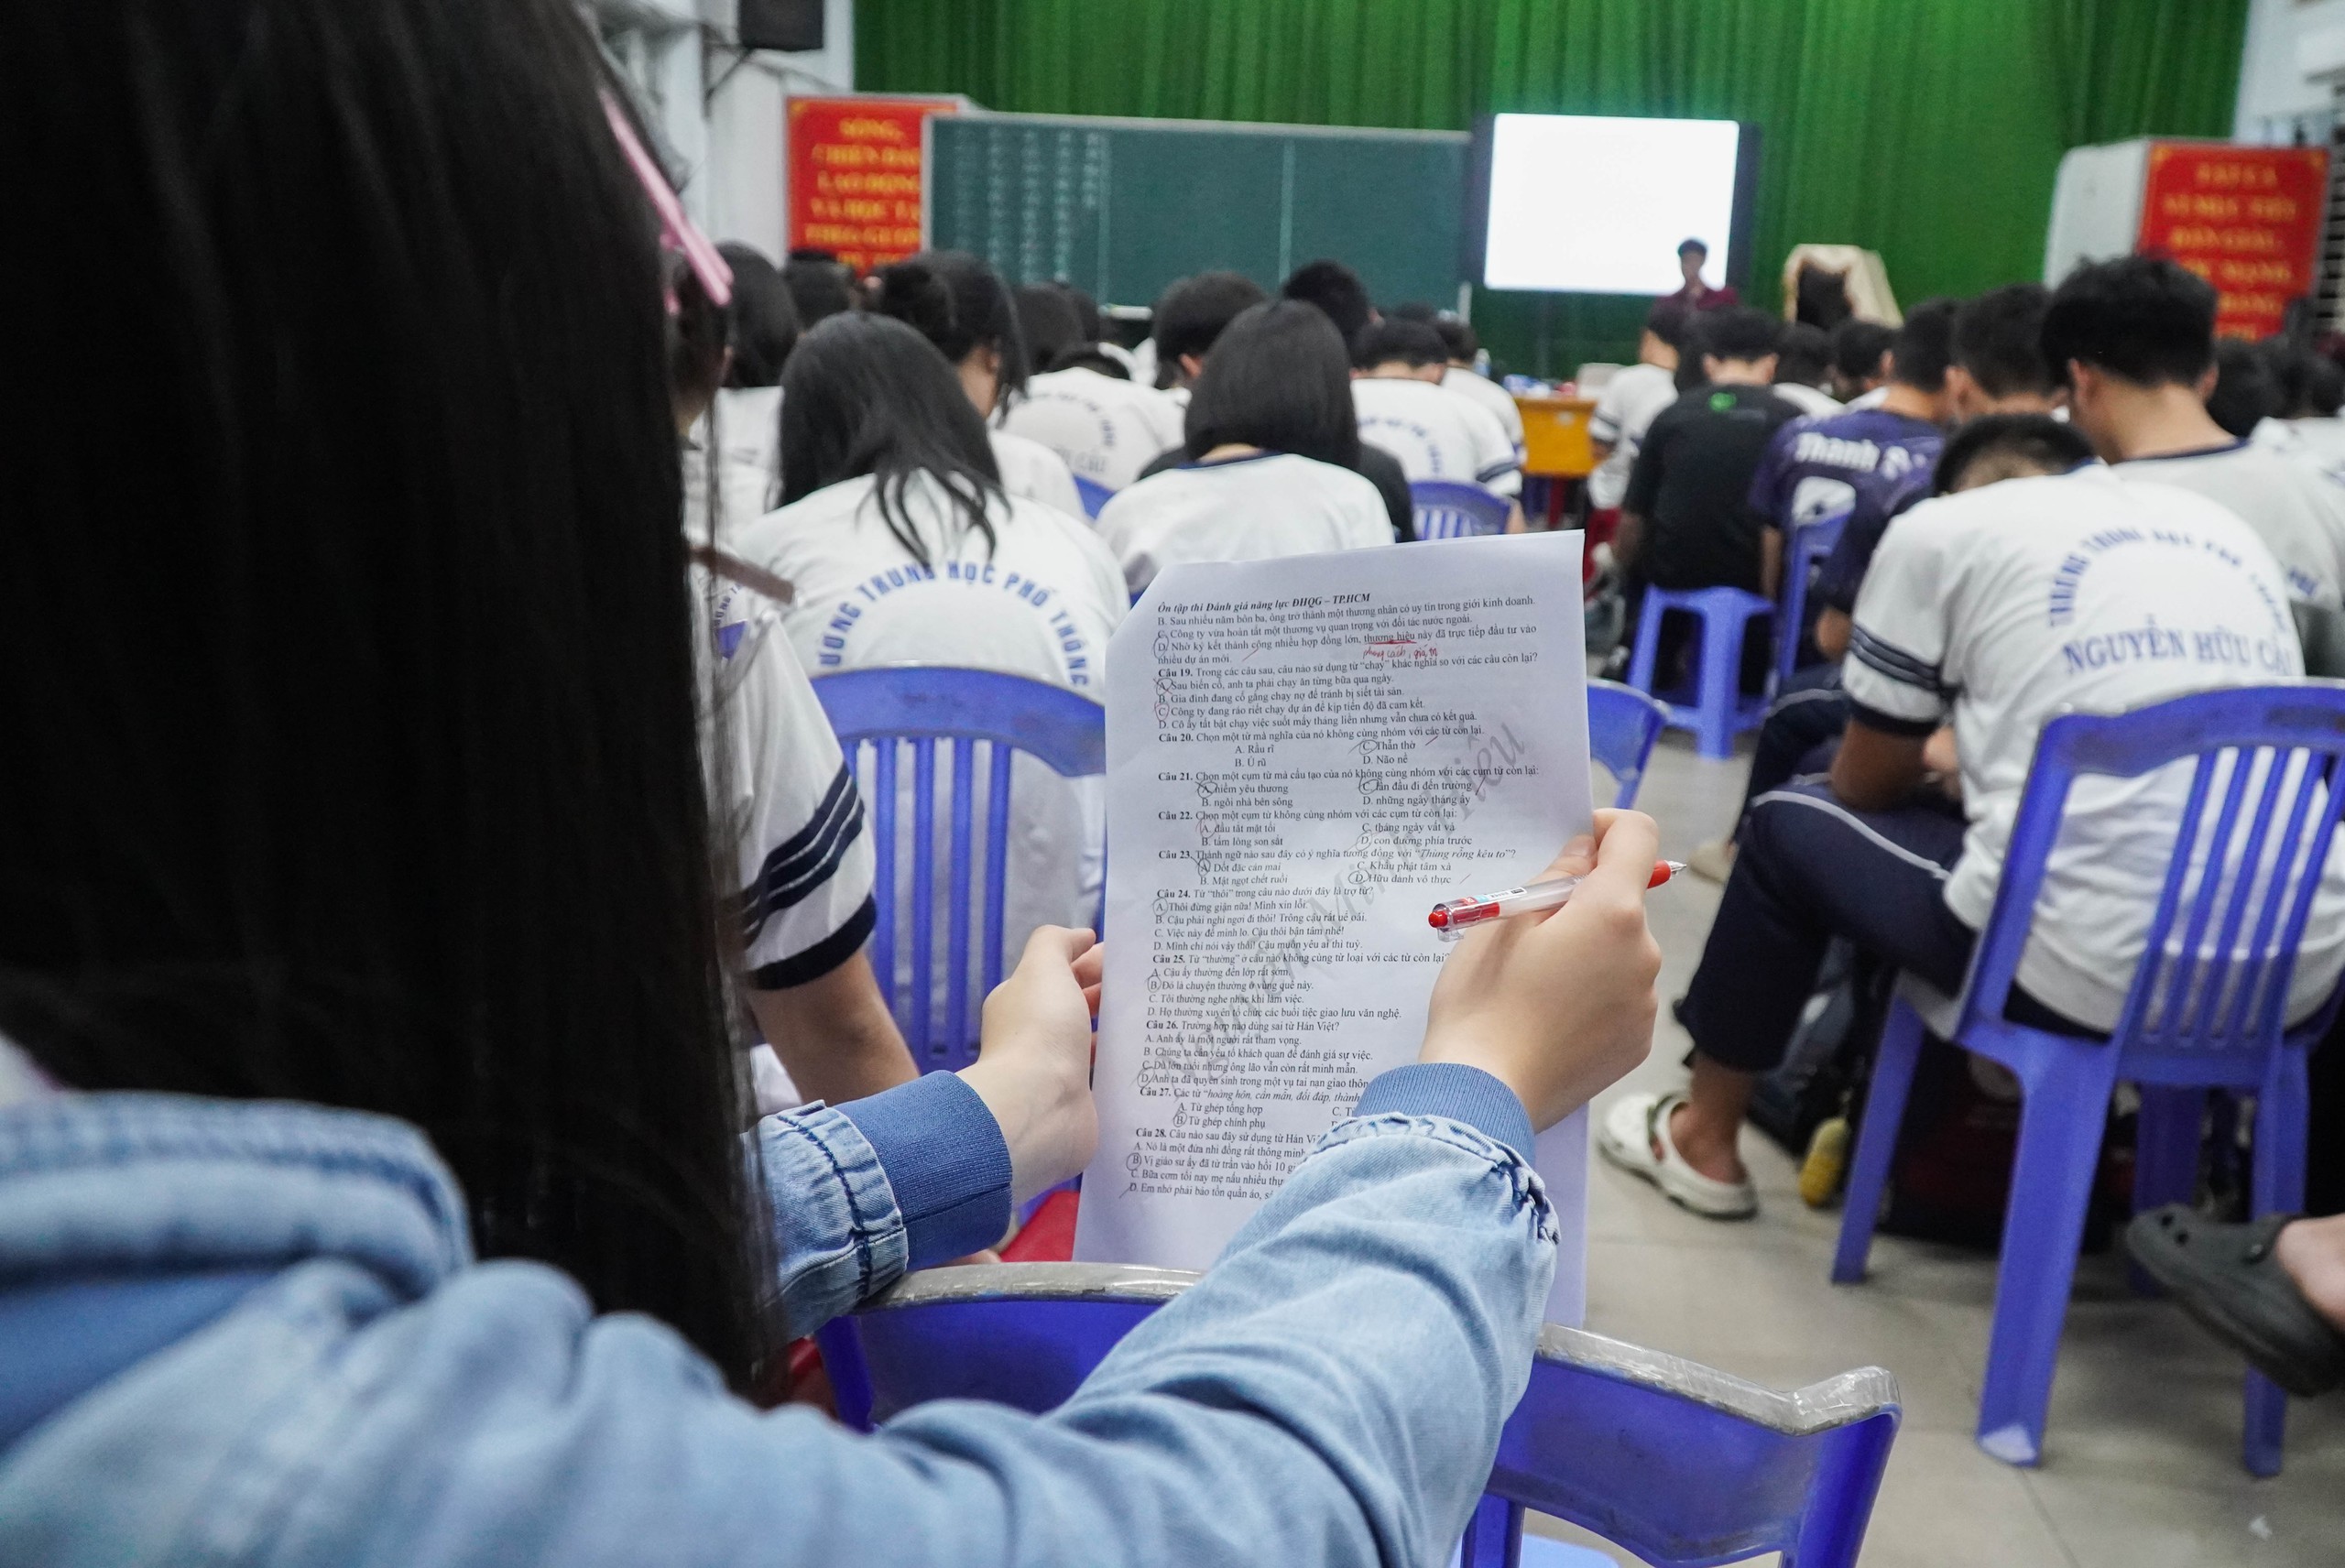 SỐNG,
CHIẾN ĐẤU,
LAO ĐỘNG
VÀ HỌC TẬP
TẤT CẢ
VÌ MỤC TIÊU
DÂN GIÀU,
Thanh
TRUNG HỌC PHỔ THÔNG
TRƯỜNG TRUNG HỌC PHỔ THÔNG
NGUYỄN HỮU CẦU
Ôn tập thi Đánh giá năng lực ĐHQG – TP.HCM
B. Sau nhiều năm bôn ba, ông trở thành một thương nhân có uy tín trong giới kinh doanh.
C. Công ty vừa hoàn tất một thương vụ quan trọng với đối tác nước ngoài.
D. Nhờ ký kết thành công nhiều hợp đồng lớn, thương hiệu này đã trực tiếp đầu tư vào
nhiều dự án mới.
phong cách, giá trị
Câu 19. Trong các câu sau, câu nào sử dụng từ “chạy” khác nghĩa so với các câu còn lại?
A. Sau biến cố, anh ta phải chạy ăn từng bữa qua ngày.
B. Gia đình đang cố gắng chạy nợ để tránh bị siết tài sản.
C. Công ty đang ráo riết chạy dự án để kịp tiến độ đã cam kết.
D. Cô ấy tất bật chạy việc suốt mấy tháng liền nhưng vẫn chưa có kết quả.
Câu 20. Chọn một từ mà nghĩa của nó không cùng nhóm với các từ còn lại.
A. Rầu rĩ C. Thẫn thờ
B. Ủ rũ D. Não nề
Câu 21. Chọn một cụm từ mà cấu tạo của nó không cùng nhóm với các cụm từ còn lại:
A. niềm yêu thương C. lần đầu đi đến trường
B. ngôi nhà bên sông D. những ngày tháng ấy
Câu 22. Chọn một cụm từ không cùng nhóm với các cụm từ còn lại:
A. đầu tắt mặt tối C. tháng ngày vất vả
B. tấm lòng son sắt D. con đường phía trước
Câu 23. Thành ngữ nào sau đây có ý nghĩa tương đồng với “Thùng rỗng kêu to”?
A. Dốt đặc cán mai C. Khẩu phật tâm xà
B. Mật ngọt chết ruồi D. Hữu danh vô thực
Câu 24. Từ “thôi” trong câu nào dưới đây là trợ từ?
A. Thôi đừng giận nữa! Mình xin lỗi.
B. Cậu phải nghỉ ngơi đi thôi! Trông cậu rất uể oải.
C. Việc này để mình lo. Cậu thôi bận tâm nhé!
D. Mình chỉ nói vậy thôi! Cậu muốn yêu ai thì tuỳ.
Câu 25. Từ “thường” ở câu nào không cùng từ loại với các từ còn lại?
A. Cậu ấy thường đến lớp rất sớm.
B. Đó là chuyện thường ở vùng quê này.
C. Tôi thường nghe nhạc khi làm việc.
D. Họ thường xuyên tổ chức các buổi tiệc giao lưu văn nghệ.
Câu 26. Trường hợp nào dùng sai từ Hán Việt?
A. Anh ấy là một người rất tham vọng.
B. Chúng ta cần yếu tố khách quan để đánh giá sự việc.
C. Dù lớn tuổi nhưng ông lão vẫn còn rất minh mẫn.
D. Anh ta đã quyên sinh trong một vụ tai nạn giao thôn
Câu 27. Các từ “hoàng hôn, cần mẫn, đối đáp, thành
A. Từ ghép tổng hợp C.
B. Từ ghép chính phụ
Câu 28. Câu nào sau đây sử dụng từ Hán Vi
A. Nó là một đứa nhi đồng rất thông minh
B. Vị giáo sư ấy đã từ trần vào hồi 10 gi
C. Bữa cơm tối nay mẹ nấu nhiều thự
D. Em nhỏ phải bảo tồn quần áo,